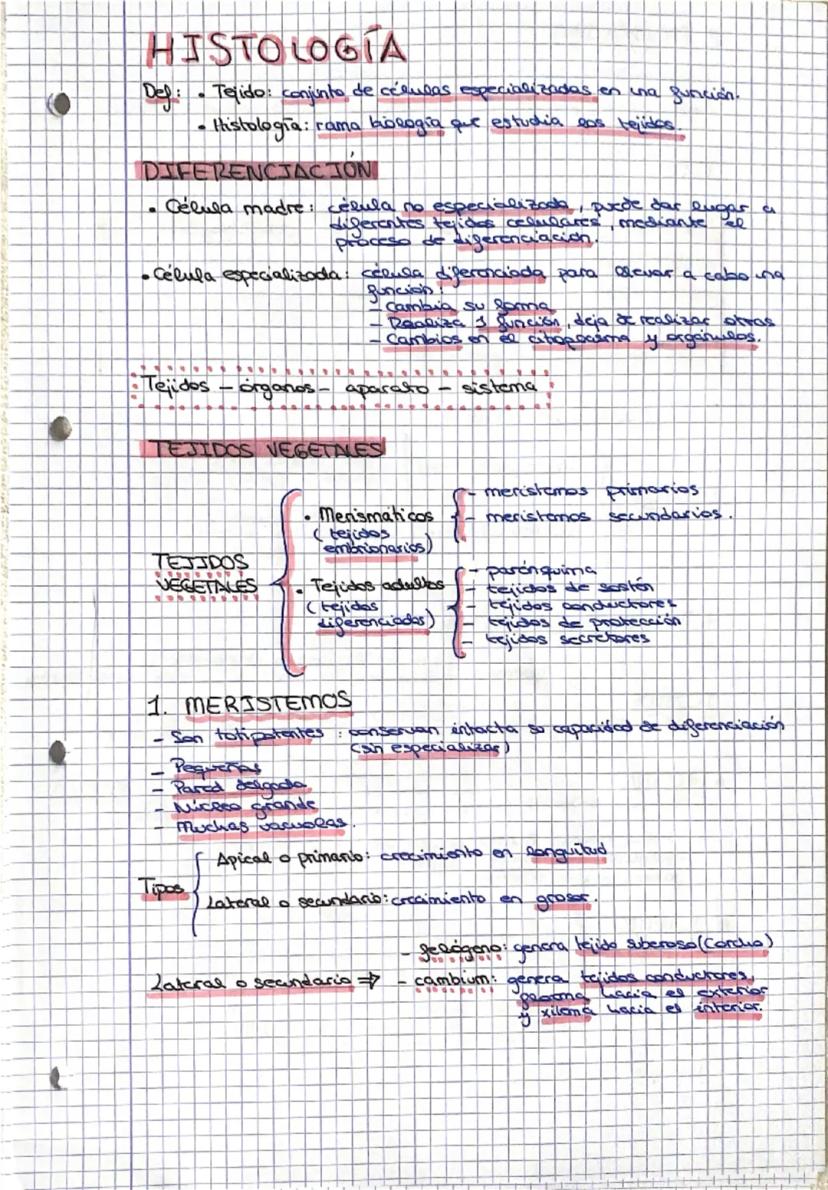 HISTOLOGÍA
Def: • Tejido: conjunto de células especializadas en una función.
• Histología: rama biología que estudia los tejidos.
DIFERENCIACIÓN
• Célula madre: célula no especializada, puede dar lugar a
diferentes tejidos celulares, mediante el
proceso de diferenciación.
• Célula especializada: célula diferenciada para llevar a cabo una
función:
- Cambia su forma
- Realiza 1 función, deja de realizar otras
- Cambios en el citoplasma y orgánulos.
Tejidos - órganos - aparato - sistema
TEJIDOS VEGETALES
TEJIDOS
VEGETALES
• Merismáticos
(tejidos
embrionarios)
- meristemos primarios
- meristemos secundarios.
• Tejidos adultos
(tejidos
diferenciados)
- parénquima
- tejidos de sostén
- tejidos conductores
- tejidos de protección
- tejidos secretores
1. MERISTEMOS
- Son totipotentes: conservan intacta su capacidad de diferenciación
(sin especializar)
- Pequeñas
- Pared delgada
- Núcleo grande
- Muchas vacuolas.
Tipos
Apical o primario: crecimiento en longuitud
Lateral o secundario: crecimiento en grosor.
Lateral o secundario ⇒
- felógeno: genera tejido suberoso (corcho)
- cambium: genera tejidos conductores,
floema hacia el exterior
y xilema hacia el interior.